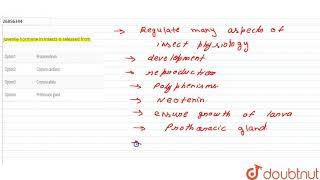 26856344
Juvenile hormone in insects is released from
Option1
Option2 Corpora cardiaca
Option3 Corpora allata
Option4 Prothoracic gland
→ Regulate many aspects of
insect physiology
→ development
→ reproduction
→ Polyphenisms
→ Neotenin
→ ensure growth of larva
→ Prothoracic gland
→
doubtnut